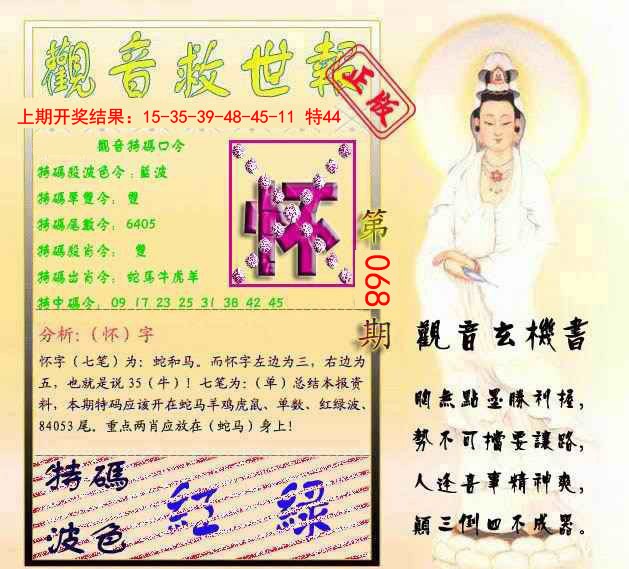 觀音救世報
正版
上期开奖结果：15-35-39-48-45-11 特44
觀音特碼口令
特碼段波色令：藍波
特碼單雙令： 雙
特碼尾數令： 6405
特碼段肖令： 雙
特碼出肖令： 蛇馬牛虎羊
特中碼令： 09 17 23 25 31 38 42 45
怀
第068期
分析：（怀）字
怀字（七笔）为：蛇和马。而怀字左边为三，右边为
五，也就是说 35（牛）！七笔为：（单）总结本报资
料，本期特码应该开在蛇马羊鸡虎鼠、单数、红绿波、
84053 尾。重点两肖应放在（蛇马）身上！
特碼
波色
紅 綠
觀音玄機書
胸無點墨勝利握，
勢不可擋要讓路，
人逢喜事精神爽，
顛三倒四不成器。